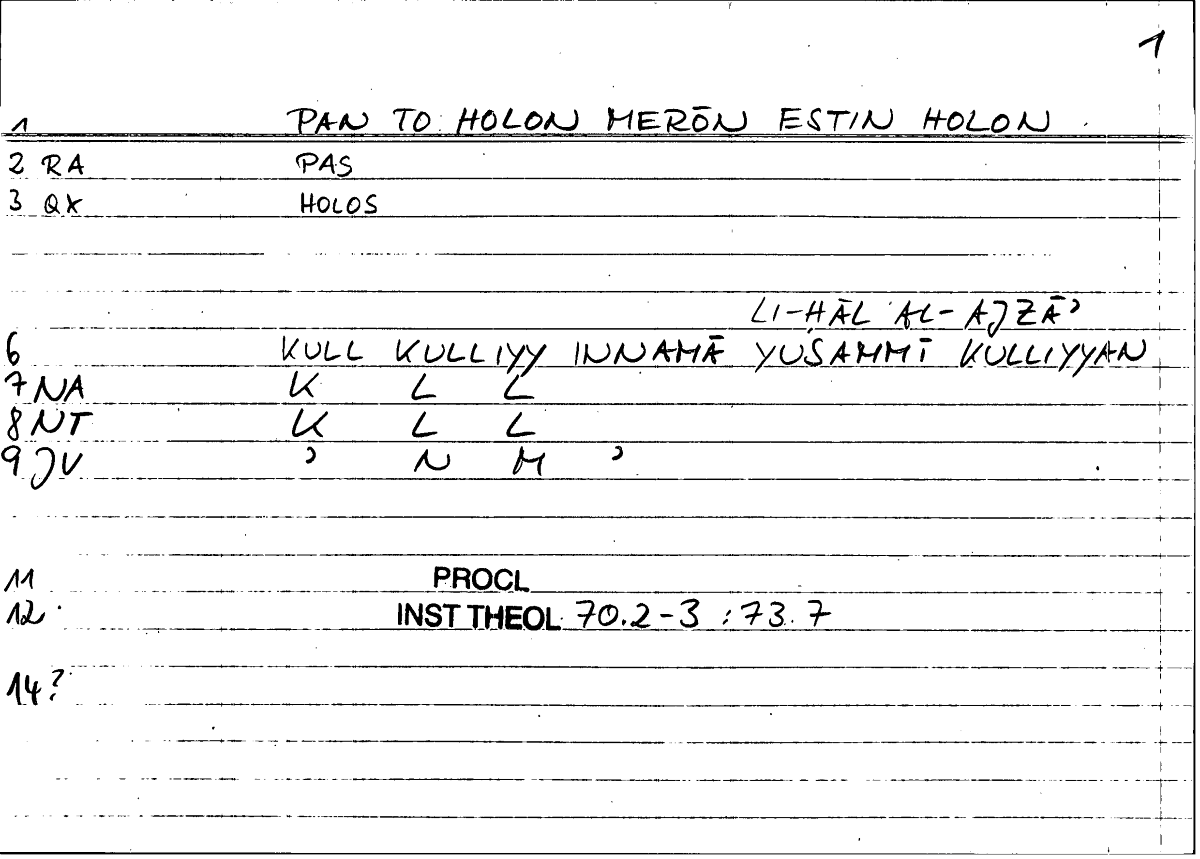 1
1 PAN TO HOLON MERŌN ESTIN HOLON
2 RA PAS
3 QX HOLOS
LI-ḤĀL AL-AJZĀʾ
6 KULL KULLIYY INNAMĀ YUSAMMĪ KULLIYYAN
7 NA K L L
8 NT K L L
9 JV ʾ N M ʾ
11 PROCL
12 INST THEOL 70.2-3 : 73.7
14?